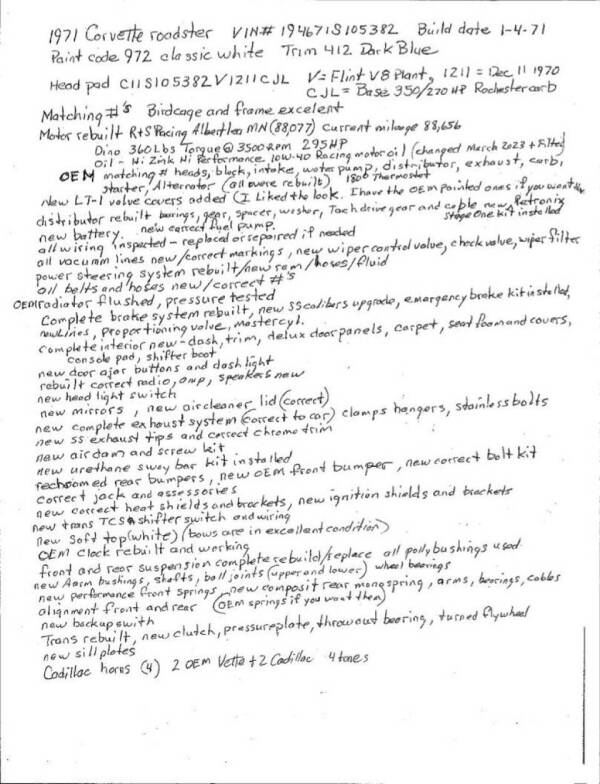 1971 Corvette roadster VIN# 194671S105382 Build date 1-4-71
Paint code 972 classic white Trim 412 Dark Blue
Head pad C11S105382 V1211CJL V= Flint V8 Plant, 1211 = Dec 11 1970
CJL= Base 350/270 HP Rochester carb
Matching #'s Birdcage and frame excelent
Motor rebuilt R+S Racing Albert Lea MN (88,077) Current mileage 88,656
Dino 360 Lbs Torque @ 3500 RPM 295 HP
Oil - Hi Zink Hi Performance 10W-40 Racing motor oil (changed March 2023 + Filter)
OEM matching # heads, block, intake, water pump, distributor, exhaust, carb,
starter, Alternator (all were rebuilt) 180° Thermostet
New LT-1 valve covers added (I liked the look. I have the OEM painted ones if you want
distributor rebuilt barings, gear, spacer, weshor, Tach drive gear and cable new, Petronix
Stage One kit installed
new battery. new correct fuel pump.
all wiring inspected - replaced or repaired if needed
all vacumn lines new/correct markings, new wiper control valve, check valve, wiper filter
power steering system rebuilt/new ram/hoses/fluid
all belts and hoses new/correct #'s
OEM radiator flushed, pressure tested
Complete brake system rebuilt, new SS calibers upgrade, emergency brake kit installed,
new lines, proportioning valve, mastercyl.
complete interior new - dash, trim, delux door panels, carpet, seat foam and covers,
console pad, shifter boot
new door ajar buttons and dash light
rebuilt correct radio, amp, speakers new
new head light switch
new mirrors, new aircleaner lid (correct)
new complete exhaust system (correct to car) clamps hangers, stainless bolts
new SS exhaust tips and correct chrome trim
new air dam and screw kit
new urethane sway bar kit installed
rechromed rear bumpers, new OEM front bumper, new correct bolt kit
correct jack and assessories
new correct heat shields and brackets, new ignition shields and brackets
new trans TCS shifter switch and wiring
new soft top (white) (bows are in excellent condition)
OEM clock rebuilt and working
front and rear suspension complete rebuild/replace all polly bushings used
new Aarm bushings, shafts, ball joints (upper and lower) wheel bearings
new performance front springs, new composit rear monospring, arms, bearings, cables
alignment front and rear (OEM springs if you want them)
new backup swith
Trans rebuilt, new clutch, pressure plate, throw out bearing, turned flywheel
new sill plates
Cadillac horns (4) 2 OEM Vette + 2 Cadillac 4 tones